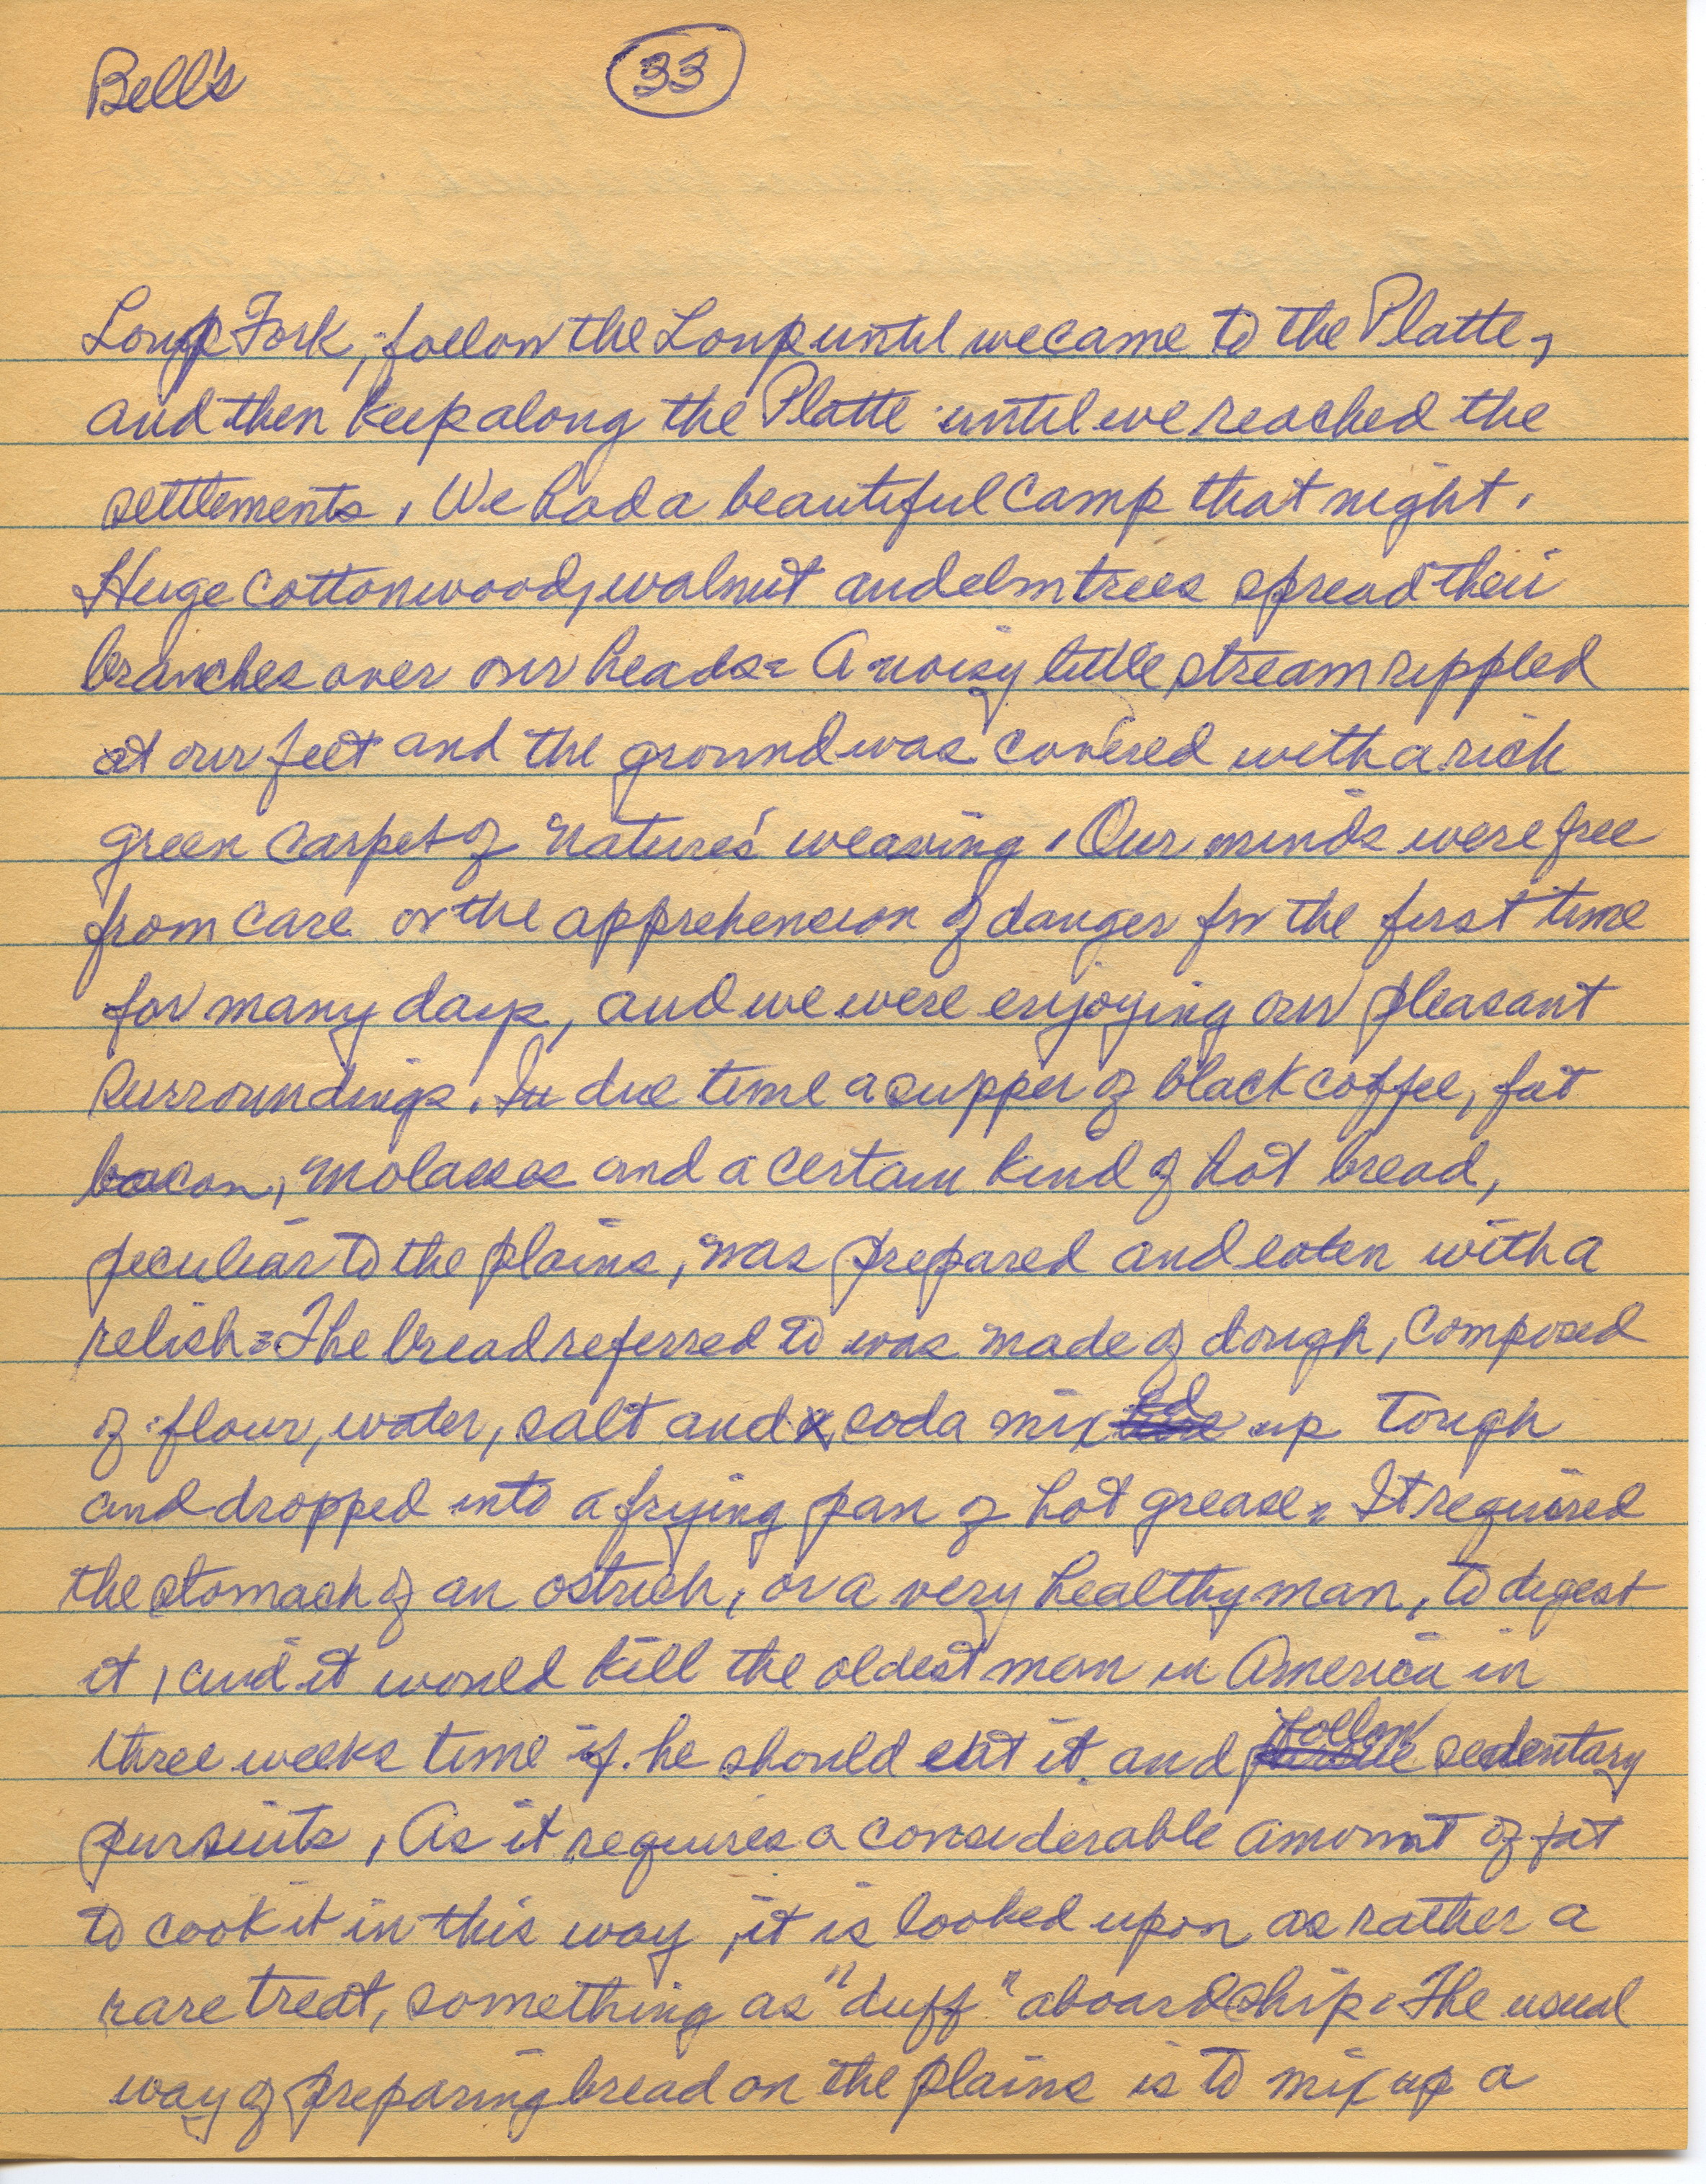 Bell's 33
Loup Fork, follow the Loup until we came to the Platte,
and then keep along the Platte until we reached the
settlements. We had a beautiful camp that night.
Huge cottonwood, walnut and elm trees spread their
branches over our heads. A noisy little stream rippled
at our feet and the ground was covered with a rich
green carpet of Nature's weaving. Our minds were free
from care or the apprehension of danger for the first time
for many days, and we were enjoying our pleasant
surroundings. In due time a supper of black coffee, fat
bacon, molasses and a certain kind of hot bread,
peculiar to the plains, was prepared and eaten with a
relish. The bread referred to was made of dough, composed
of flour, water, salt and soda mixed up tough
and dropped into a frying pan of hot grease. It required
the stomach of an ostrich, or a very healthy man, to digest
it, and it would kill the oldest man in America in
three weeks time if he should eat it and follow sedentary
pursuits. As it requires a considerable amount of fat
to cook it in this way, it is looked upon as rather a
rare treat, something as "duff" aboard ship. The usual
way of preparing bread on the plains is to mix up a